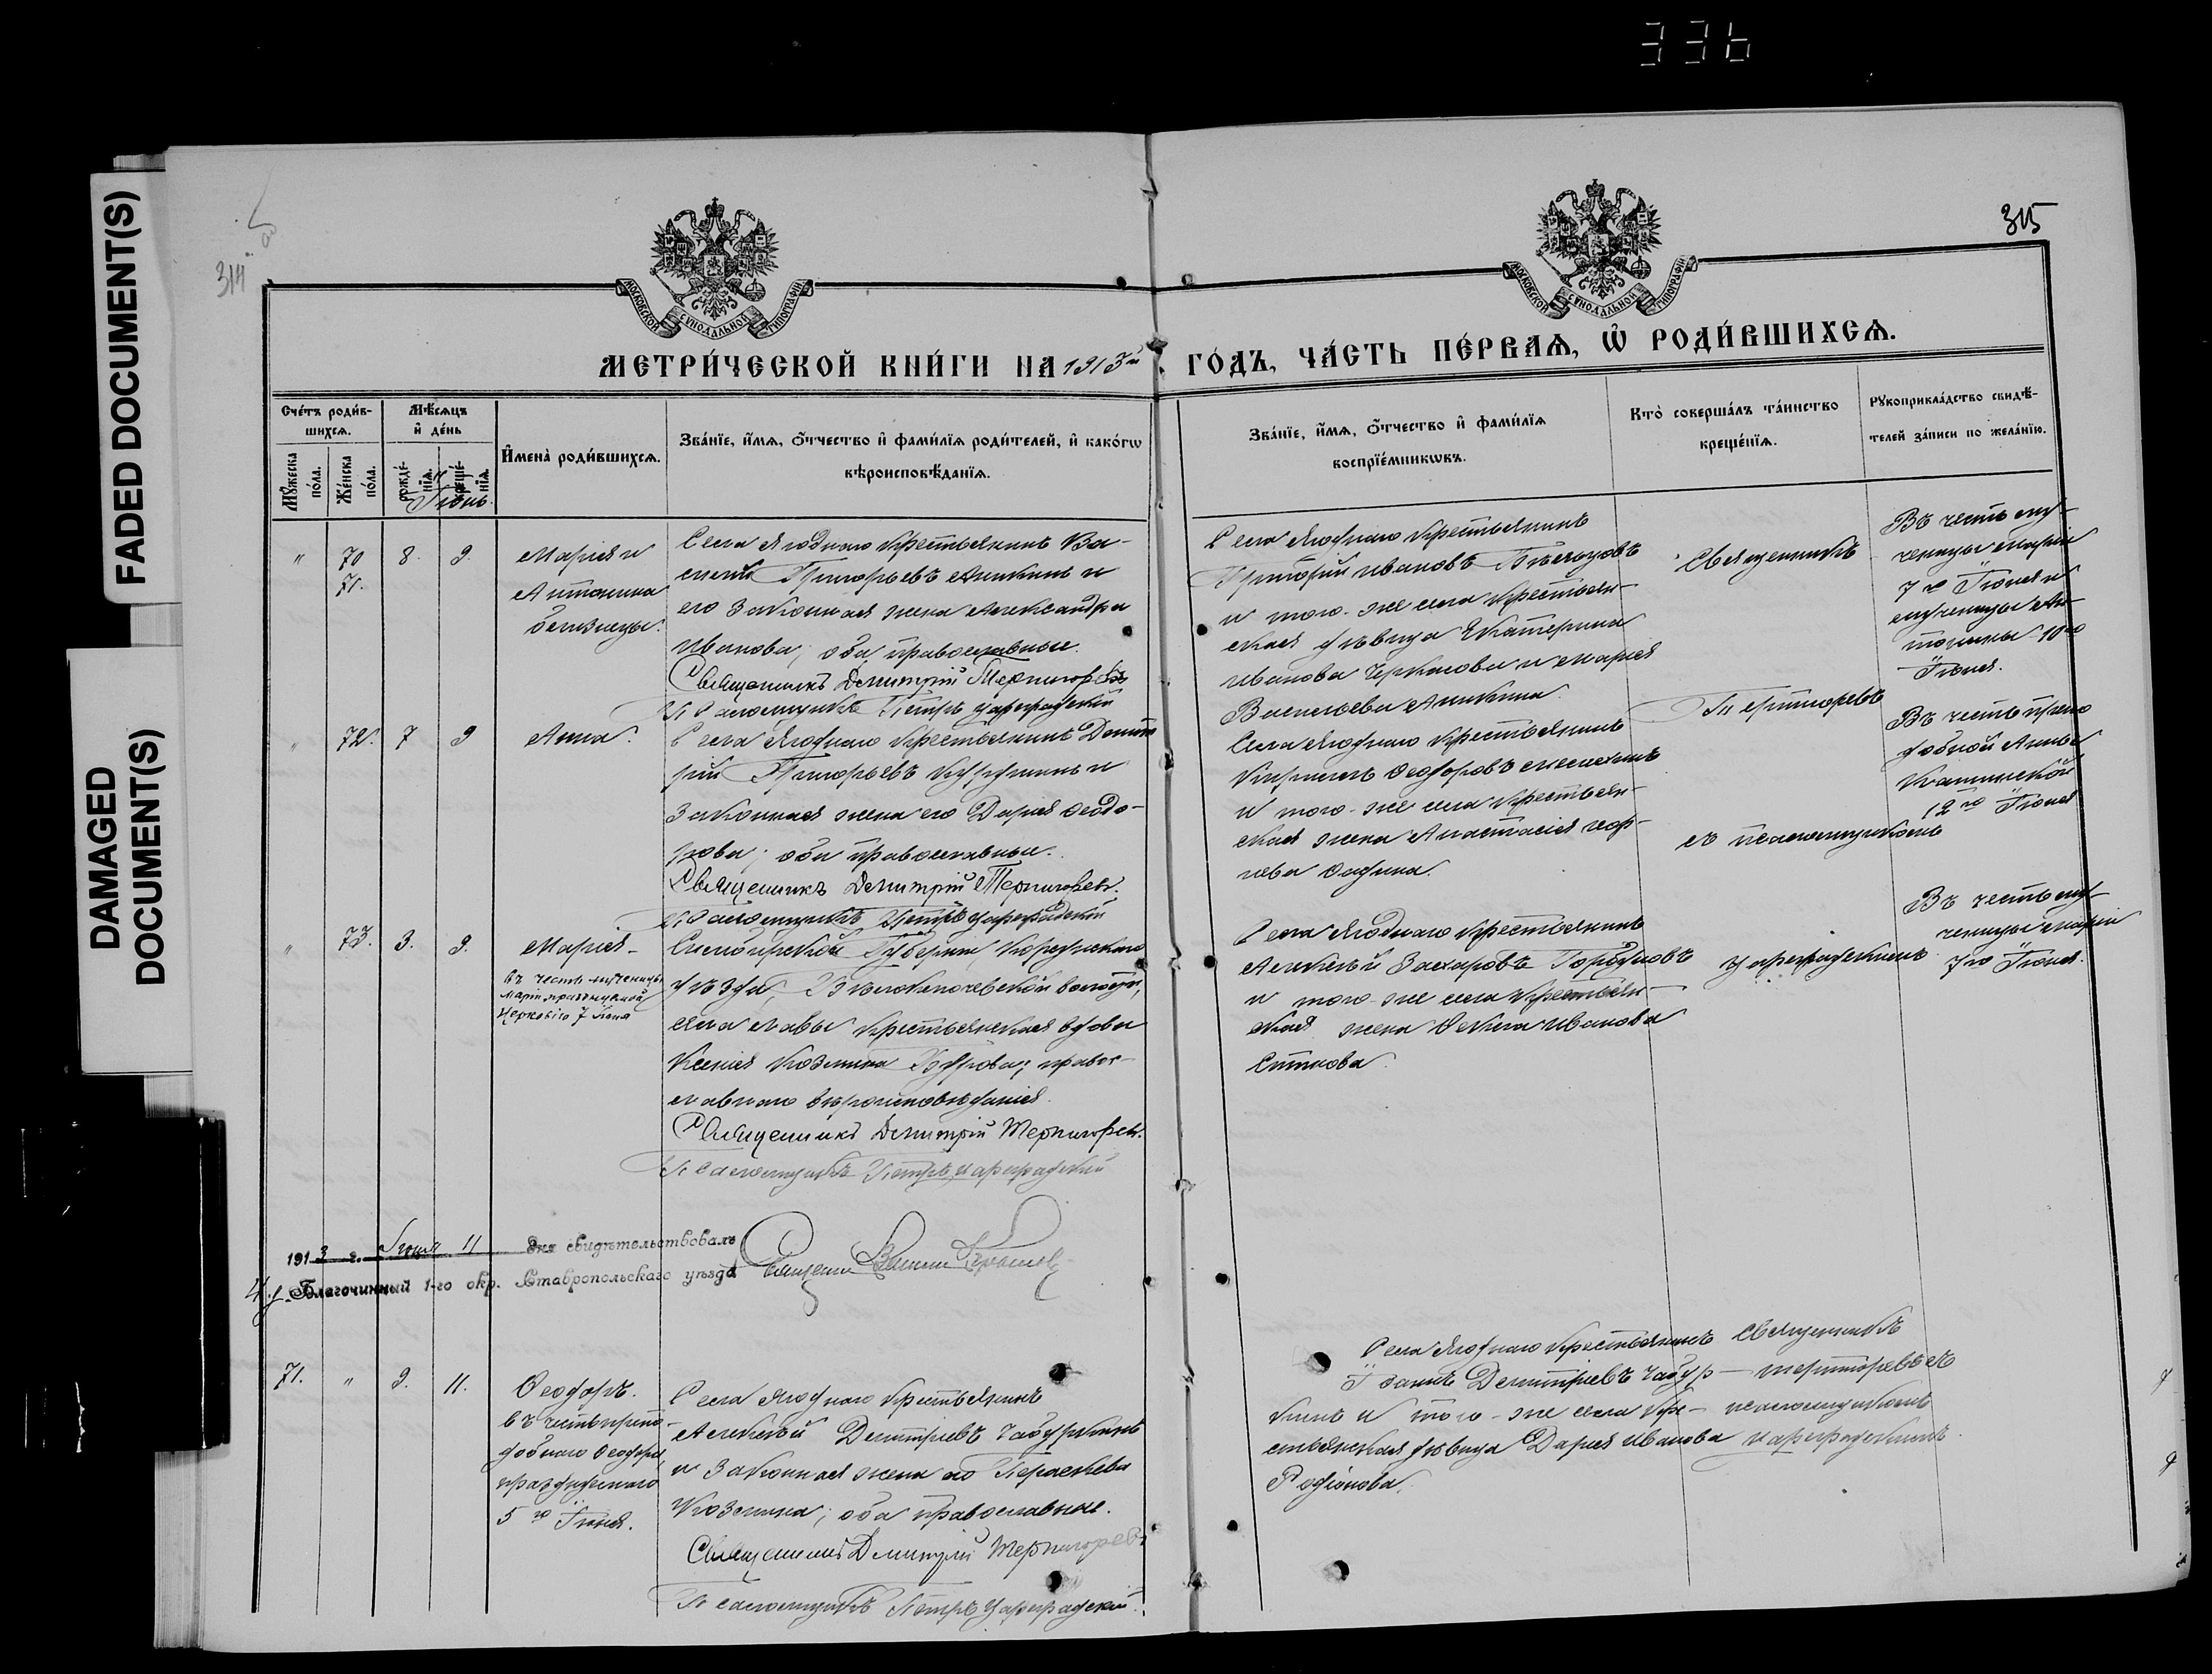 336
FADED DOCUMENT(S)
DAMAGED
DOCUMENT(S)
314
315
МОСКОВСКОЙ СѴНОДАЛЬНОЙ ТИПОГРАФІИ
МОСКОВСКОЙ СѴНОДАЛЬНОЙ ТИПОГРАФІИ
МЕТРИ́ЧЕСКОЙ КНИ́ГИ НА 1913й ГО́ДЪ, ЧА́СТЬ ПЕ́РВАѦ, Ѡ҆ РОДИ́ВШИХСѦ.
Сче́тъ роди́в-
шихсѧ.
Мꙋ́жеска по́ла.
Же́нска по́ла.
Мѣ́сѧцъ
и҆ де́нь
рожде́-
нїѧ.
креще́-
нїѧ.
И҆мена̀ роди́вшихсѧ.
Зва́нїе, и҆́мѧ, ѻ҆́тчество и҆ фами́лїѧ роди́телей, и҆ како́гѡ
вѣроисповѣ́данїѧ.
Зва́нїе, и҆́мѧ, ѻ҆́тчество и҆ фами́лїѧ
воспрїе́мникѡвъ.
Кто̀ соверша́лъ та́инство
креще́нїѧ.
Рꙋкоприкла́дство свидѣ́-
телей за́писи по жела́нїю.
Іюнь
" 70 8. 9. Марія и
71.
Антонина
близнецы.
Села Ягоднаго крестьянинъ Ва-
силій Григорьевъ Аникинъ и
его законная жена Александра
Иванова; оба православные.
Священникъ Димитрій Терпигоревъ
Псаломщикъ Петръ Цареградскій
Села Ягоднаго крестьянинъ
Григорій Ивановъ
и того-же села крестьян-
ская дѣвица Екатерина
Иванова Черкасова и Марія
Васильева Аникина
Священникъ
Въ честь му-
ченицы Маріи
7го Іюня и
мученицы Ан-
тонины 10го
Іюня.
" 72. 7 9 Анна.
Села Ягоднаго крестьянинъ Димит
рій Григорьевъ и
законная жена его Дарія Ѳеодо-
рова; оба православные.
Священникъ Димитрій Терпигоревъ.
Псаломщикъ Петръ Цареградскій
Села Ягоднаго крестьянинъ
Ѳеодоровъ
и того-же села крестьян-
ская жена Анастасія
Терпигоревъ
съ псаломщикомъ
Въ честь препо
добной Анны
Кашинской
12го Іюня
" 73. 3. 9. Марія
въ честь мученицы
Маріи празднуемой
Церковію 7 Іюня
Симбирской Губерніи, Корсунскаго
уѣзда, волости,
села Лавы крестьянская вдова
Ксенія Козьмина правос-
лавнаго вѣроисповѣданія
Священникъ Димитрій Терпигоревъ.
Псаломщикъ Петръ Цареградскій
Села Ягоднаго крестьянинъ
Алексѣй Захаровъ
и того-же села крестьян-
ская жена Ѳекла Иванова
Цареградскимъ
Въ честь му-
ченицы Маріи
7го Іюня.
1913 г. Іюня 11 дня свидѣтельствовалъ
И.д. Благочинный 1-го окр. Ставропольскаго уѣзда Священникъ
71. " 9. 11. Ѳеодоръ.
въ честь препо-
добнаго Ѳеодора,
празднуемаго
5го Іюня.
Села Ягоднаго крестьянинъ
Алексѣй Димитріевъ Чабуркинъ
и законная жена его Параскева
Козьмина; оба православные.
Священникъ Димитрій Терпигоревъ
Псаломщикъ Петръ Цареградскій.
Села Ягоднаго крестьянинъ
Іоаннъ Димитріевъ Чабур-
кинъ и того-же села кре-
стьянская дѣвица Дарія Иванова
Родіонова.
Священникъ
Терпигоревъ съ
псаломщикомъ
Цареградскимъ.